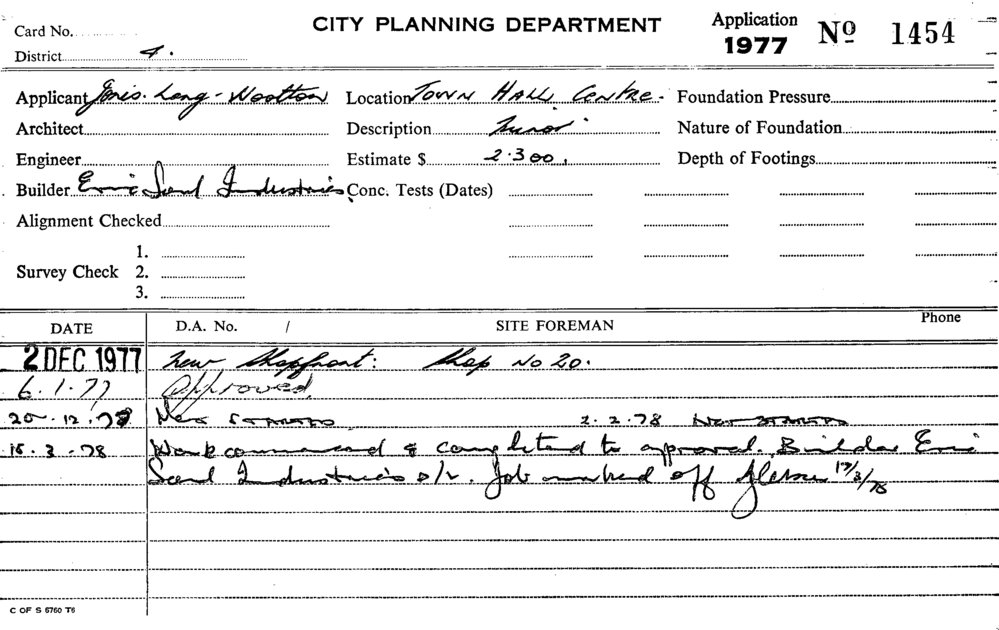 Card No.
CITY PLANNING DEPARTMENT
Application 1977 No 1454
District 4.
Applicant Jones. Lang - Wootton Location Town Hall Centre. Foundation Pressure
Architect Description Minor Nature of Foundation
Engineer Estimate $ 2.300. Depth of Footings
Builder Eric Industries Conc. Tests (Dates)
Alignment Checked
Survey Check 1.
2.
3.
DATE D.A. No. / SITE FOREMAN Phone
2 DEC 1977 New Shopfront: Shop No 20.
6.1.77 Approved.
20.12.78 Not Started 2.2.78 Not Started
15.3.78 Work commenced & completed to aproval. Builder Eric
Industries o/r. Job marked off 17/3/78
C OF S 6760 T6